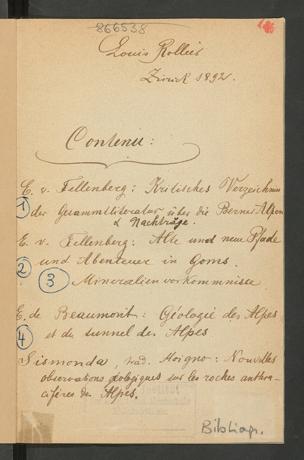 866538
Louis Rollier
Zürich 1892.
Contenu:
E. v. Fellenberg: Kritisches Verzeichniss
① der Gesammtliteratur über die Berner Alpen
& Nachträge.
E. v. Fellenberg: Alte und neue Pfade
② und Abenteuer in Goms.
③ Mineralienvorkommnisse
E. de Beaumont: Géologie des Alpes
④ et du tunnel des Alpes
Sismonda, trad. Moigno: Nouvelles
observations géologiques sur les roches anthra-
cifères des Alpes.
Bibliogr.